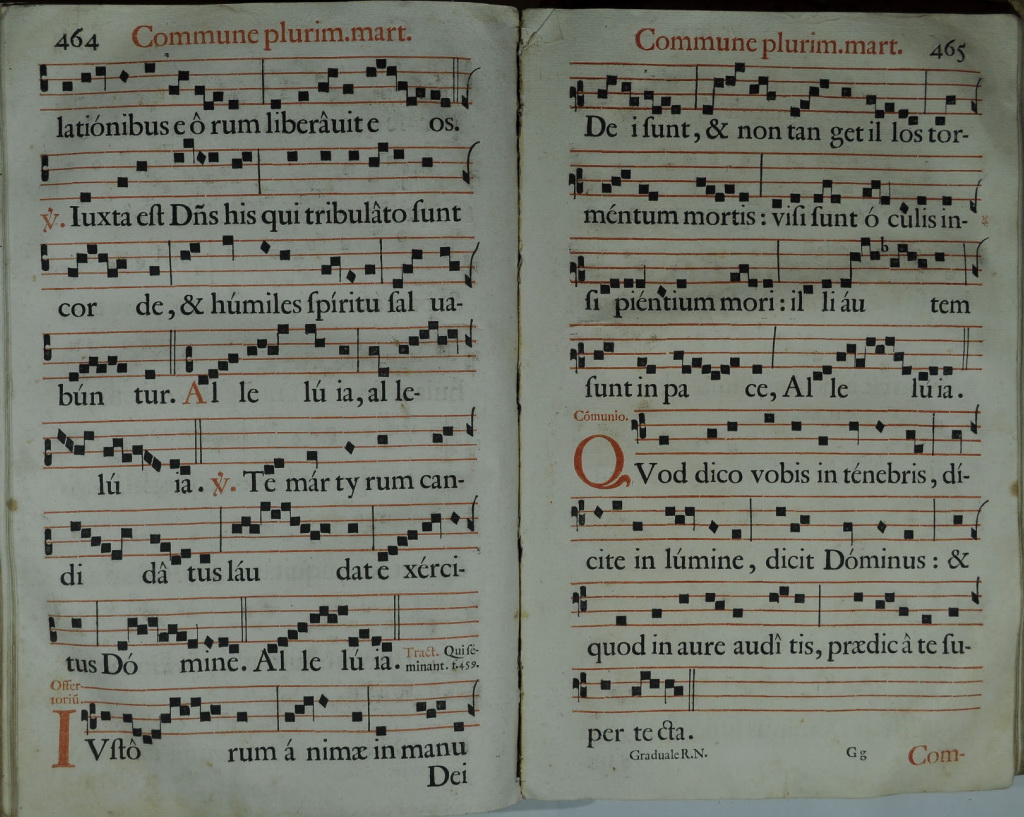 464 Commune plurim.mart.
latiónibus e ô rum liberâuit e os.
℣. Iuxta eſt Dñs his qui tribulâto ſunt
cor de, & húmiles ſpíritu ſal ua-
bún tur. Al le lú ia, al le-
lú ia. ℣. Te már ty rum can-
di dâ tus láu dat e xérci-
tus Dó mine. Al le lú ia. Tract. Qui ſe-
minant. f.459.
Offer-
toriũ.
IVſtô rum á nimæ in manu
Dei
Commune plurim.mart. 465
De i ſunt, & non tan get il los tor-
méntum mortis : viſi ſunt ó culis in-
ſi piéntium mori : il li áu tem
ſunt in pa ce, Al le lú ia.
Cómunio.
QVod dico vobis in ténebris, dí-
cite in lúmine, dicit Dóminus : &
quod in aure audî tis, prædic â te ſu-
per te cta.
Graduale R.N. G g Com-